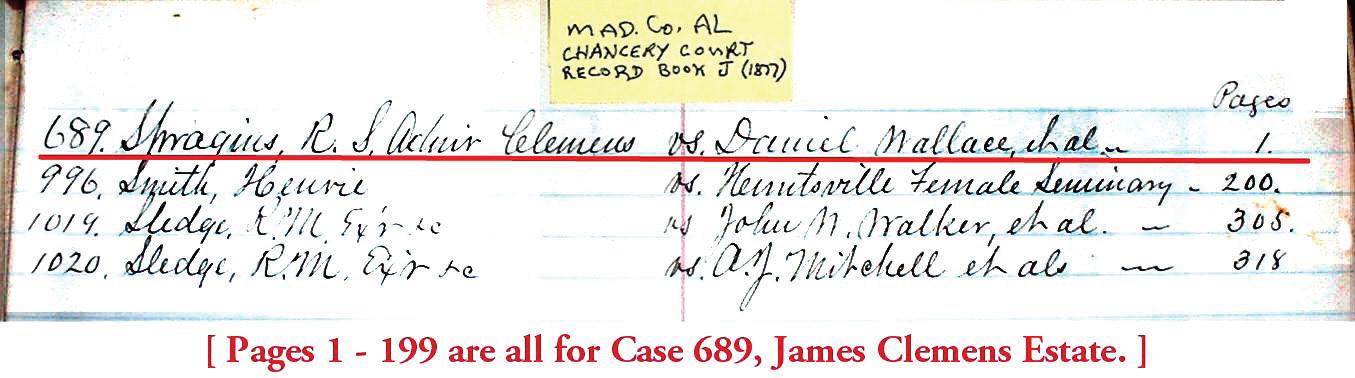 MAD. CO, AL
CHANCERY COURT
RECORD BOOK J (1877)
Pages
689. Spragins, R. S. Adm'r Clemens vs. Daniel Wallace, et al. 1.
996. Smith, Henrie vs. Huntsville Female Seminary - 200.
1019. Sledge, R.M. Ex'r &c vs John W. Walker, et al. — 305.
1020. Sledge, R.M. Ex'r &c vs. A.J. Mitchell et als — 318
[ Pages 1 - 199 are all for Case 689, James Clemens Estate. ]